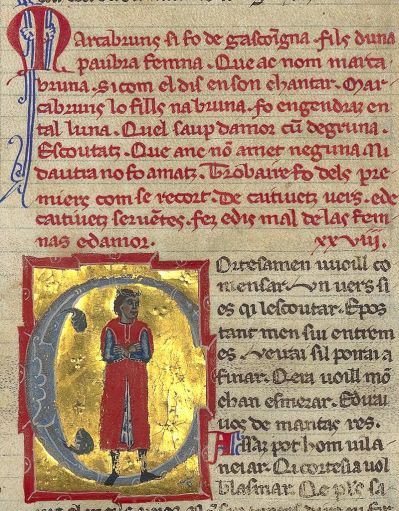 Marcabruns si fo de gascoĩgna. fils duna
paubra femna. Que ac nom marca
bruna. si com el dis en son chantar. Mar
cabruns lo fills na bruna. fo engendraz en
tal luna. Quel saup damor cũ degruna.
Escoutatz. Que anc nõ amet neguna. Ni
dautra no fo amatz. Trobaire fo dels pre
miers com se recort. De caitivetz vers. e de
caitivetz serventes. fez e dis mal de las fem
nas e damor. xxviii.
Cortesamen vuoill co
mensar. un vers si
es qi lescoutar. E pos
tant men sui entrem
es. veirai sil poirai a
finar. Qera voill mõ
chan esmerar. E dirai
vos de mantas res.
pot hom vila
neiar. Qi cortesia vol
blasmar. Qe